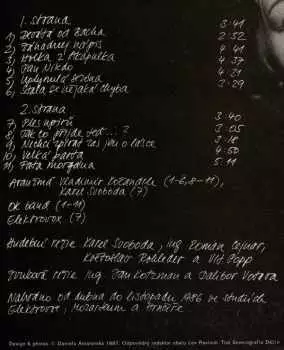 1. strana
1) Dcerka od Bacha 3:41
2) Záhadnej nápis 2:52
3) Holka z Akapulka 4:41
4) Pan Nikdo 4:37
5) Uplynulá sezóna 4:21
6) Stala se nějaká chyba 3:29
2. strana
7) Ples upírů 3:40
8) Tak to přijde teď...? 3:05
9) Nechci zpívat jen o lásce 3:18
10) Velká parta 4:50
11) Fata morgana 5:11
Aranžmá Vladimír (1-6, 8-11),
Karel Svoboda (7)
OK band (1-11)
Elektrovox (7)
Hudební režie Karel Svoboda, ing. Roman
Květoslav Rohleder a Vít Popp
Zvuková režie ing. Jan Kotzman a Dalibor
Nahráno od dubna do listopadu 1986 ve studiích
Elektrovox, Mozarteum a
Design & photos © Daniela 1987. Odpovědný redaktor obalu Lev